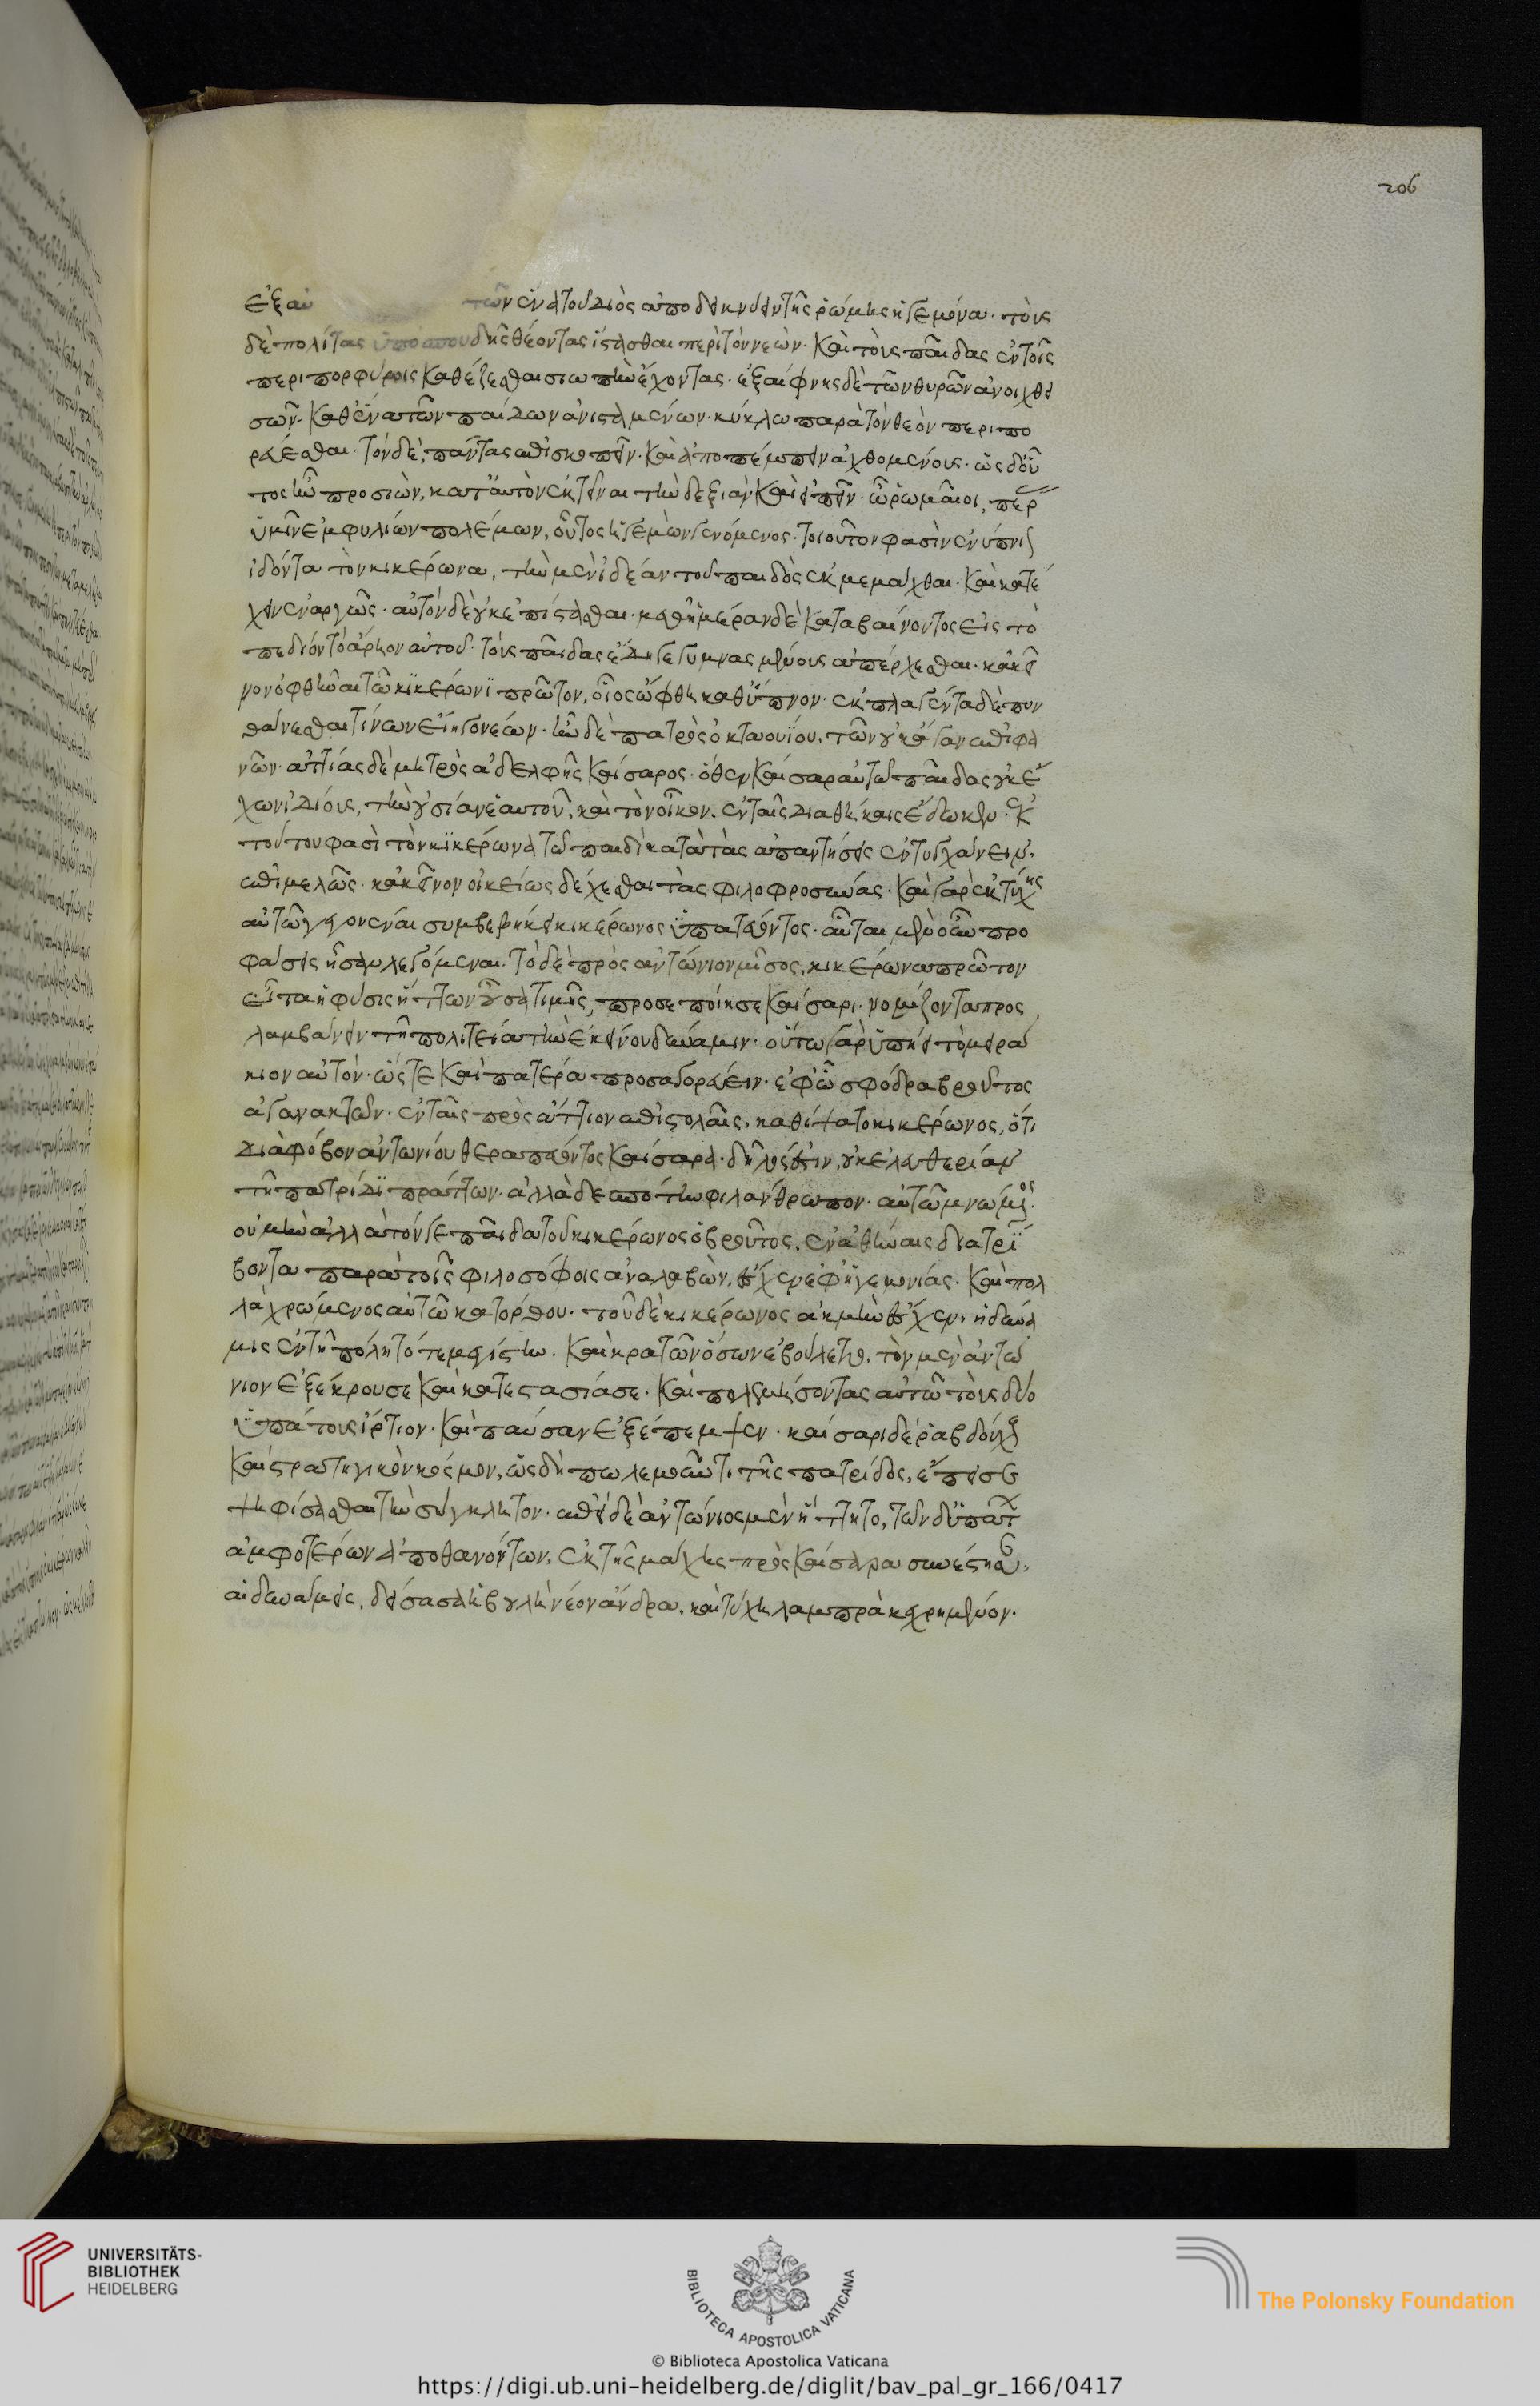 206
ἐξ αὐ τῶν ἕνα τοῦ διὸς ἀποδεικνύειν τῆς ῥώμης ἡγεμόνα· τοὺς
δὲ πολίτας ὑπὸ σπουδῆς θέοντας ἵστασθαι περὶ τὸν νεών· καὶ τοὺς παῖδας ἐν τοῖς
περιπορφύροις καθέζεσθαι σιωπὴν ἔχοντας· ἐξαίφνης δὲ τῶν θυρῶν ἀνοιχθει
σῶν· καθ' ἕνα τῶν παίδων ἀνισταμένων· κύκλω παρὰ τὸν θεὸν περιπο
ρεύεσθαι· τὸν δὲ, πάντας ἐπισκοπεῖν· καὶ ἀποπέμπειν ἀχθομένους· ὡς δ' οὗ
τος ἦν προσιὼν, κατ' αὐτὸν ἐκτεῖναι τὴν δεξιὰν καὶ εἰπεῖν· ὦ ῥωμαῖοι, περ
ὑμῖν ἐμφυλίων πολέμων, οὗτος ἡγεμὼν γενόμενος· τοιοῦτον φασὶν ἐνύπνιον
ἰδόντα τὸν κικέρωνα, τὴν μὲν ἰδέαν τοῦ παιδὸς ἐκμεμάχθαι· καὶ κατέ
χειν ἐναργῶς· αὐτὸν δὲ οὐκ ἐπίστασθαι· καθ' ἡμέραν δὲ καταβαίνοντος εἰς τὸ
πεδίον τὸ ἄρειον αὐτοῦ· τοὺς παῖδας ἤδη γεγυμνασμένους ἀπέρχεσθαι· κἀκεῖ
νον ὀφθῆναι τῶ κικέρωνι πρῶτον, οἷος ὤφθη καθ' ὕπνον· ἐκπλαγέντα δὲ πυν
θάνεσθαι τίνων εἴη γονέων· ἦν δὲ πατρὸς ὀκταουίου, τῶν οὐκ ἄγαν ἐπιφα
νῶν· ἀττίας δὲ μητρὸς ἀδελφῆς καίσαρος· ὅθεν καῖσαρ αὐτῶ παῖδας οὐκ ἔ
χων ἰδίους, τὴν οὐσίαν ἑαυτοῦ, καὶ τὸν οἶκον, ἐν ταῖς διαθήκαις ἔδωκεν· ἐκ
τούτου φασὶ τὸν κικέρωνα τῶ παιδὶ κατὰ τὰς ἀπαντήσεις ἐντυγχάνειν·
ἐπιμελῶς· κἀκεῖνον οἰκείως δέχεσθαι τὰς φιλοφροσύνας· καὶ γὰρ ἐκ τύχης
αὐτῶ γεγονέναι συμβεβήκει κικέρωνος ὑπατεύοντος· αὗται μὲν οὖν προ
φάσεις ἦσαν λεγόμεναι· τὸ δὲ πρὸς ἀντώνιον μῖσος, κικέρωνα πρῶτον
εἶτα ἡ φύσις ἥττων οὖσα τιμῆς, προσεποίησε καίσαρι· νομίζοντα προς
λαμβάνειν τῆ πολιτεία τὴν ἐκείνου δύναμιν· οὕτω γὰρ ὑπήει τὸ μειρά
κιον αὐτὸν· ὥστε καὶ πατέρα προσαγορεύειν· ἐφ' ὧ σφόδρα βροῦτος
ἀγανακτῶν· ἐν ταῖς πρὸς ἄττιον ἐπιστολαῖς, καθήψατο κικέρωνος, ὅτι
διὰ φόβον ἀντωνίου θεραπεύοντος καίσαρα· δῆλός ἐστιν, οὐκ ἐλευθερίαν
τῆ πατρίδι πράττων· ἀλλὰ δεσπότην φιλάνθρωπον· αὐτῶ μνώμενος·
οὐ μὴν ἀλλὰ τόν γε παῖδα τοῦ κικέρωνος ὁ βροῦτος, ἐν ἀθήναις διατρί
βοντα παρὰ τοῖς φιλοσόφοις ἀναλαβὼν, ἔσχεν ἐφ' ἡγεμονίας· καὶ πολ
λὰ χρώμενος αὐτῶ κατόρθου· τοῦ δὲ κικέρωνος ἀκμὴν ἔσχεν, ἡ δύνα
μις ἐν τῆ πόλει τότε μεγίστην· καὶ κρατῶν ὅσων ἐβούλετο, τὸν μὲν ἀντώ
νιον ἐξέκρουσε καὶ κατεστασίασε· καὶ πολεμήσοντας αὐτῶ τοὺς δύο
ὑπάτους ἵρτιον· καὶ παύσαν ἐξέπεμψεν· καίσαρι δὲ ῥαβδούχους
καὶ στρατηγικὸν κόσμον, ὡς δὴ πωλεμοῦντι τῆς πατρίδος, ἔπεισε
ψηφίσασθαι τὴν σύγκλητον· ἐπεὶ δὲ ἀντώνιος μὲν ἥττητο, τῶν δ' ὑπάτων
ἀμφοτέρων ἀποθανόντων, ἐκ τῆς μάχης πρὸς καίσαρα συνέστησαν·
αἱ δυνάμεις, δείσασα ἡ βουλὴ νέον ἄνδρα, καὶ τύχη λαμπρὰ κεχρημένον·
UNIVERSITÄTS-
BIBLIOTHEK
HEIDELBERG
BIBLIOTECA APOSTOLICA VATICANA
The Polonsky Foundation
© Biblioteca Apostolica Vaticana
https://digi.ub.uni-heidelberg.de/diglit/bav_pal_gr_166/0417